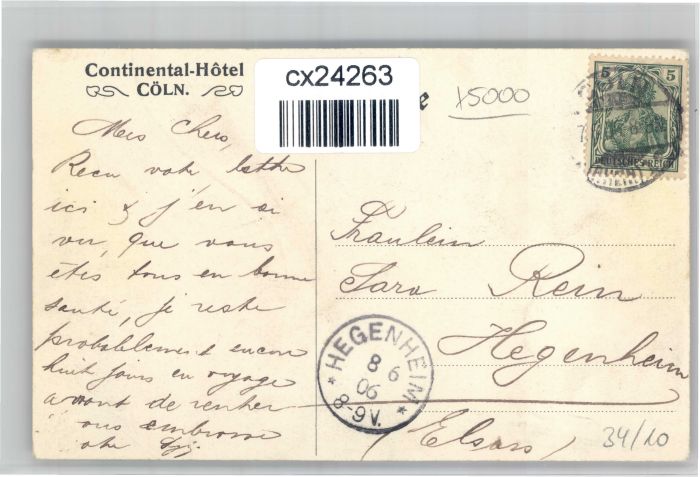 Continental-Hôtel
CÖLN.
cx24263
15000
5 5
DEUTSCHES REICH
Mes Chers,
Recu votre lettre
ici & j'en ai
vu, que vous
êtes tous en bonne
santé, je reste
probablement encore
huit jours en voyage
avant de rentrer
vous embrasse
Fraulein
Sara Rein
Hegenheim
(Elsass)
HEGENHEIM
8 6
06
8-9V.
34/10